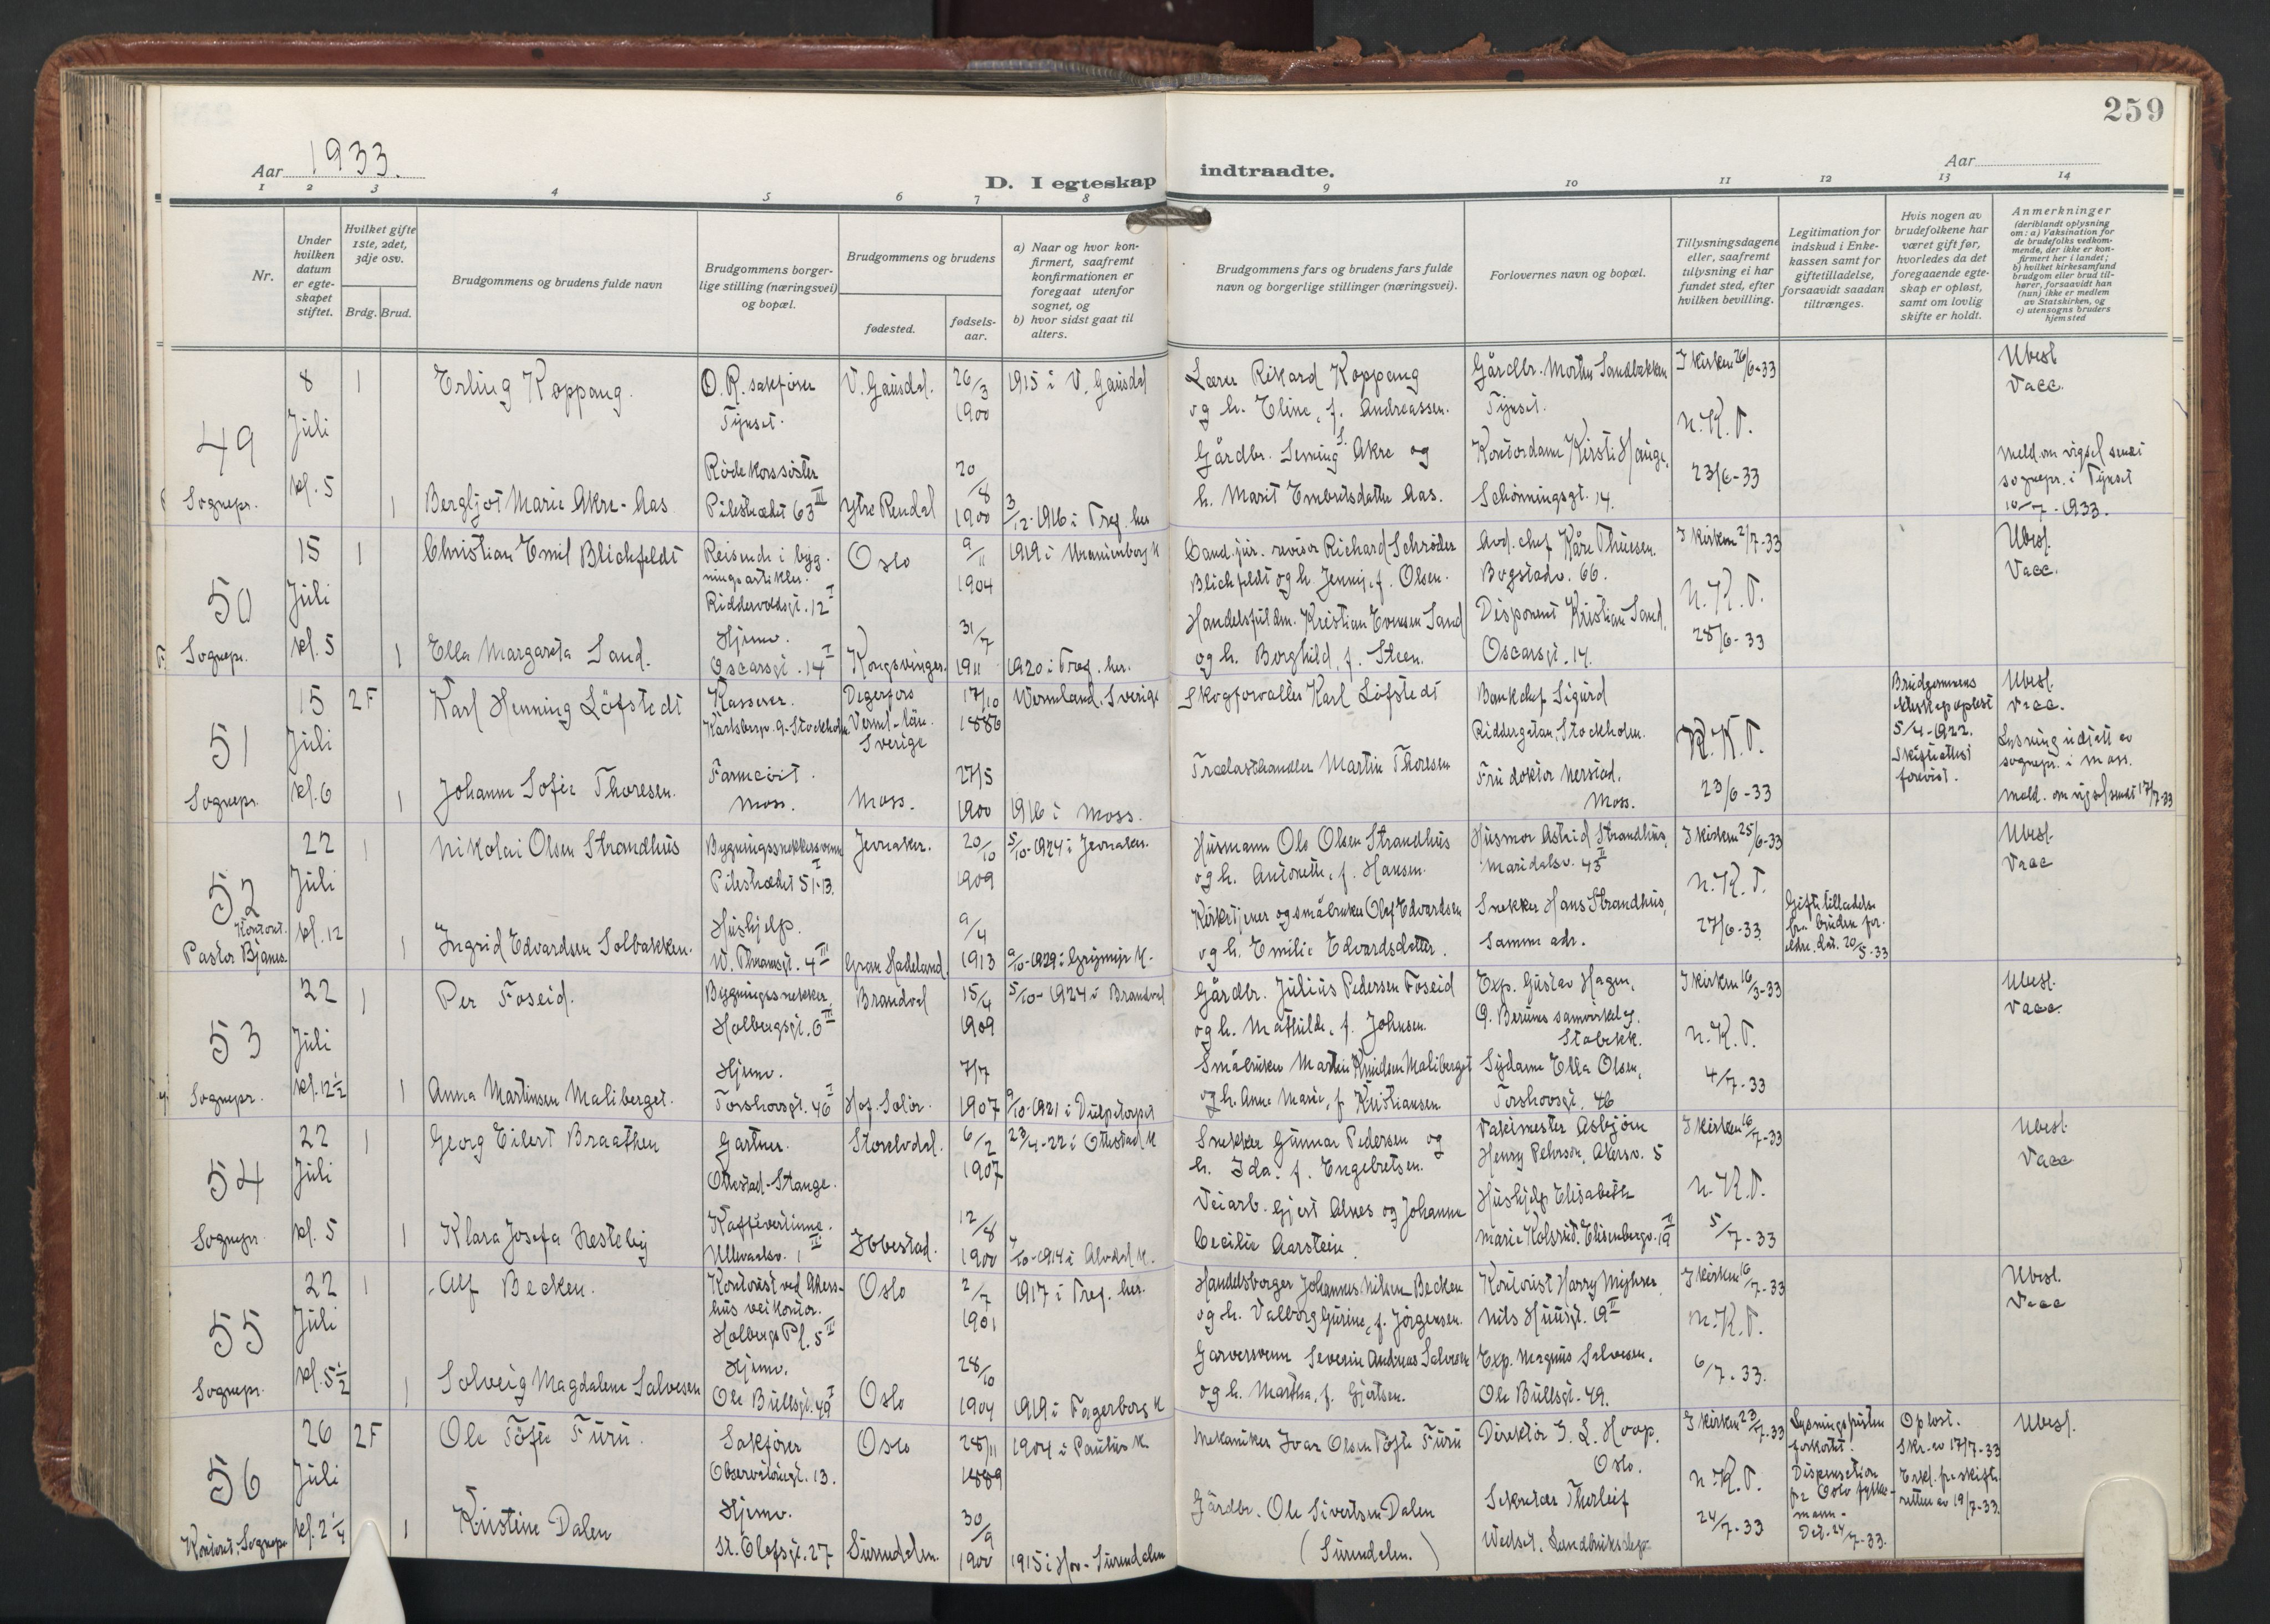 259
Aar 1933.
D. I egteskap indtraadte.
Aar
1 2 3 4 5 6 7 8 9 10 11 12 13 14
Nr.
Under hvilken datum er egteskapet stiftet.
Hvilket gifte 1ste, 2det, 3dje osv.
Brdg. Brud.
Brudgommens og brudens fulde navn
Brudgommens borgerlige stilling (næringsvei) og bopæl.
Brudgommens og brudens
fødested.
fødselsaar.
a) Naar og hvor konfirmert, saafremt konfirmationen er foregaat utenfor sognet, og
b) hvor sidst gaat til alters.
Brudgommens fars og brudens fars fulde navn og borgerlige stillinger (næringsvei).
Forlovernes navn og bopæl.
Tillysningsdagene eller, saafremt tillysning ei har fundet sted, efter hvilken bevilling.
Legitimation for indskud i Enkekassen samt for giftetilladelse, forsaavidt saadan tiltrænges.
Hvis nogen av brudefolkene har været gift før, hvorledes da det foregaaende egteskap er opløst, samt om lovlig skifte er holdt.
Anmerkninger
(deriblandt oplysning om: a) Vaksination for de brudefolks vedkommende, der ikke er konfirmert her i landet; b) hvilket kirkesamfund brudgom eller brud tilhører, forsaavidt han (hun) ikke er medlem av Statskirken, og c) utensogns bruders hjemsted
49
Sognepr.
8 Juli kl. 5
1 Erling Koppang.
O.R. sakfører Tynset.
V. Gausdal.
26/3 1900
1915 i V. Gausdal
Lærer Rikard Koppang og h. Eline, f. Andreassen.
Gårdbr. Morten Sandbakken Tynset.
I kirken 26/6-33
n. K. P.
23/6-33
Ubesl. Vacc.
1 Bergljot Marie Akre-Aas
Røde korssøster Pilestrædet 63 III
Ytre Rendal
20/8 1900
3/12-1916 i Tref. her
Gårdbr. Seming S. Akre og h. Marit Embretsdatter Aas.
Kontordame Kirsti Hauge, Schønningsgt. 14.
Meld. om vigsel sendt sognepr. i Tynset 10/7-1933.
50
Sognepr.
15 Juli kl. 5
1 Christian Emil Blichfeldt
Reisende i bygningsartikler. Riddervoldsgt. 12 I
Oslo
9/11 1904
1919 i Uranienborg K
Cand. jur. revisor Richard Schrøder Blichfeldt og h. Jenny, f. Olsen.
Avd. chef Kåre Thuesen. Bogstadv. 66.
I kirken 2/7-33
n. K. P.
28/6-33
Ubesl. Vacc.
1 Ella Margareta Sand.
Hjemv. Oscarsgt. 14 I
Kongsvinger.
31/7 1911
1920 i Tref. her.
Handelsfuldm. Kristian Evensen Sand og h. Borghild, f. Steen.
Disponent Kristian Sand, Oscarsgt. 14.
51
Sognepr.
15 Juli kl. 6
2F Karl Henning Löfstedt
Kasserer. Karlsbergv. 9. Stockholm.
Degerfors Verml. län. Sverige
17/10 1886
Wermland, Sverige
Skogforvalter Karl Löfstedt
Bankchef Sigurd Riddergatan, Stockholm.
K. K. P.
23/6-33
Brudgommens ekteskap opløst 5/4-1922. Skifteattest forevist.
Ubesl. Vacc.
Lysning utstedt av sognepr. i Moss.
Meld. om vigsel sendt 17/7-33
1 Johanne Sofie Thoresen.
Farmacøit. Moss.
Moss.
27/5 1900
1916 i Moss.
Trælasthandler Martin Thoresen
Fru doktor Nerstad, Moss.
52
Kontoret. Pastor Bjånes.
22 Juli kl. 12
1 Nikolai Olsen Strandhus
Bygningssnekkersvenn Pilestrædet 51-13.
Jevnaker.
20/10 1909
5/10-1924 i Jevnaker.
Husmann Ole Olsen Strandhus og h. Antonette, f. Hansen.
Husmor Astrid Strandhus, Maridalsv. 43 II
I kirken 25/6-33
n. K. P.
27/6-33.
Ubesl. Vacc
1 Ingrid Edvardsen Solbakken.
Hushjelp. W. Thranesgt. 4 III
Gran Hadeland.
9/4 1913
9/10-1929 i Grymyr K.
Kirketjener og småbruker Olaf Edvardsen og h. Emilie Edvardsdatter.
Snekker Hans Strandhus, samme adr.
Giftetilladelse fra brudens foreldre. dat. 20/5-33
53
Sognepr.
22 Juli kl. 12 1/2
1 Per Foseid.
Bygningssnekker, Holbergsgt. 6 III
Brandval
15/4 1909
5/10-1924 i Brandval
Gårdbr. Julius Pedersen Foseid og h. Mathilde, f. Johnsen.
Exp. Gustav Hagen, Ø. Berums samvirkelag. Stabekk.
I kirken 16/3-33
n. K. P.
4/7-33
Ubesl. Vacc.
1 Anna Martinsen Maliberget.
Hjemv. Torshovsgt. 46 I
Hof-Solør.
7/7 1907
9/10-1921 i Dulpetorpet
Småbruker Martin Knudsen Maliberget og h. Anne Marie, f. Kristiansen
Sydame Ella Olsen, Torshovsgt. 46
54
Sognepr.
22 Juli kl. 5
1 Georg Eilert Braathen
Gartner. Ottestad-Stange.
Storelvdal.
6/2 1907
23/4-22 i Ottestad K
Snekker Gunnar Pedersen og h. Ida, f. Engebretsen.
Vaktmester Asbjørn Henry Pehrson, Akersv. 5
I kirken 16/7-33
n. K. P.
5/7-33
Ubesl. Vacc
1 Klara Josefa Hesteby
Kaffevertinne. Ullevaalsv. 1 II
Ibbestad.
12/8 1900
4/10-1914 i Alvdal K.
Veiarb. Gjert Alnes og Johanne Cecilie Aarstein.
Hushjelp Elisabeth Marie Kolsrud. Elisenbergv. 19 IV
55
Sognepr.
22 Juli kl. 5 1/2
1 Alf Becken.
Kontorist ved Akershus veikontor. Holbergs Pl. 5 II
Oslo
2/7 1901
1917 i Tref. her.
Handelsborger Johannes Nilsen Becken og h. Valborg Gurine, f. Jørgensen.
Kontorist Harry Myhrer, Nils Huusgt. 19 II
I kirken 16/7-33
n. K. P.
6/7-33.
Ubesl. Vacc
1 Solveig Magdalene Salvesen
Hjemv. Ole Bullsgt. 49 I
Oslo
28/10 1904
1919 i Fagerborg K
Garversvenn Severin Andreas Salvesen og h. Martha, f. Gjertsen.
Exp. Magnus Salvesen. Ole Bullsgt. 49.
56
Kontoret. Sognepr.
26 Juli kl. 2 1/4
2F Ole Töfte Furu.
Sakfører Observatoriegt. 13.
Oslo
28/11 1889
1904 i Paulus K.
Mekaniker Ivar Olsen Töfte Furu
Direktør G. L. Hoop. Oslo.
I kirken 23/7-33
n. K. P.
24/7-33
Lysningsfristen forkortet. Dispensation fra Oslo fylkemann. Dat. 24/7-33.
Opløst. Skr. av 17/7-33 Erkl. fra skifteretten av 19/7-33.
Ubesl.
1 Kristine Dalen
Hjemv. St. Olafsgt. 27
Surendalen.
30/9 1900
1915 i Hov-Surendalen
Gårdbr. Ole Sivertsen Dalen (Surendalen.)
Sekretær Thorleif Wedset. Landbruksdep.